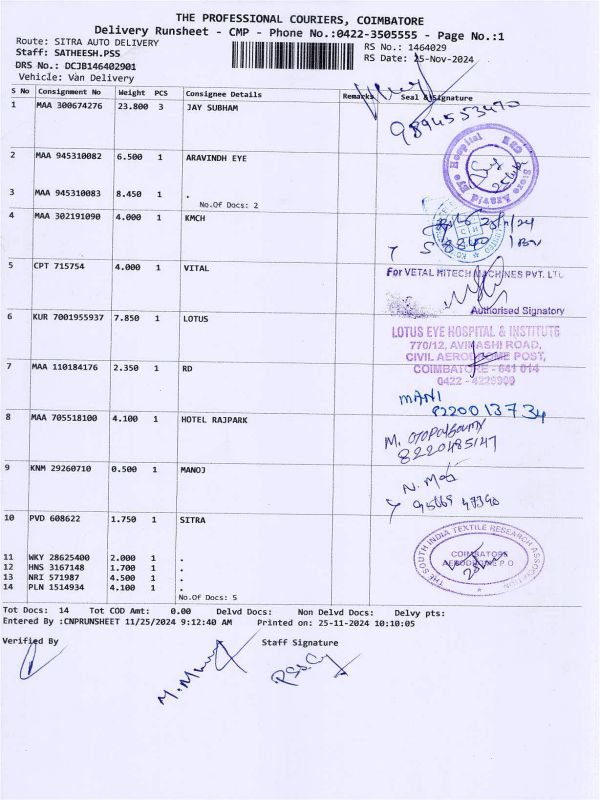 THE PROFESSIONAL COURIERS, COIMBATORE
Delivery Runsheet - CMP - Phone No.:0422-3505555 - Page No.:1
Route: SITRA AUTO DELIVERY
RS No.: 1464029
Staff: SATHEESH.PSS
RS Date: 25-Nov-2024
DRS No.: DCJB146402901
Vehicle: Van Delivery
S No Consignment No Weight PCS Consignee Details Remarks Seal & Signature
1 MAA 300674276 23.800 3 JAY SUBHAM
9894553470
2 MAA 945310082 6.500 1 ARAVINDH EYE
3 MAA 945310083 8.450 1 .
No.Of Docs: 2
4 MAA 302191090 4.000 1 KMCH
5 CPT 715754 4.000 1 VITAL
For VETAL HITECH MACHINES PVT. LTD
Authorised Signatory
6 KUR 7001955937 7.850 1 LOTUS
LOTUS EYE HOSPITAL & INSTITUTE
770/12, AVINASHI ROAD,
CIVIL AERODROME POST,
COIMBATORE - 641 014
0422 - 4229909
7 MAA 110184176 2.350 1 RD
MANI
8220013734
8 MAA 705518100 4.100 1 HOTEL RAJPARK
8220485147
9 KNM 29260710 0.500 1 MANOJ
10 PVD 608622 1.750 1 SITRA
THE SOUTH INDIA TEXTILE RESEARCH ASSOCIATION
COIMBATORE
AERODROME P O
11 WKY 28625400 2.000 1 .
12 HNS 3167148 1.700 1 .
13 NRI 571987 4.500 1 .
14 PLN 1514934 4.100 1 .
No.Of Docs: 5
Tot Docs: 14 Tot COD Amt: 0.00 Delvd Docs: Non Delvd Docs: Delvy pts:
Entered By :CNPRUNSHEET 11/25/2024 9:12:40 AM Printed on: 25-11-2024 10:10:05
Verified By
Staff Signature